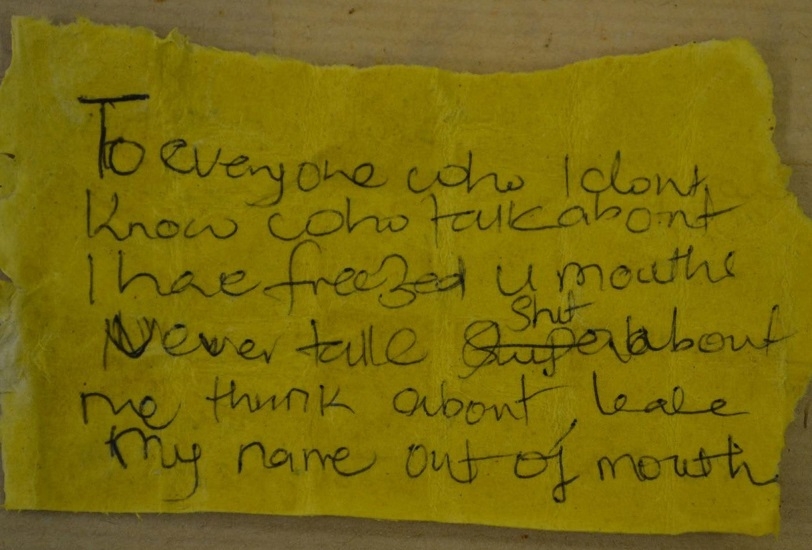 To everyone who I dont
Know who talk about
I have freezed u mouths
Shit
Never talk about
me think about, leave
My name out of mouth